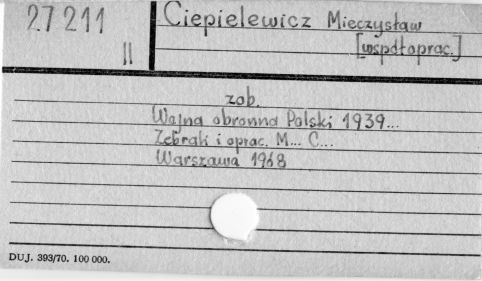 27211
II
Ciepielewicz Mieczysław
[współoprac.]
zob.
Wojna obronna Polski 1939...
Zebrali i oprac. M... C...
Warszawa 1968
DUJ. 393/70. 100 000.